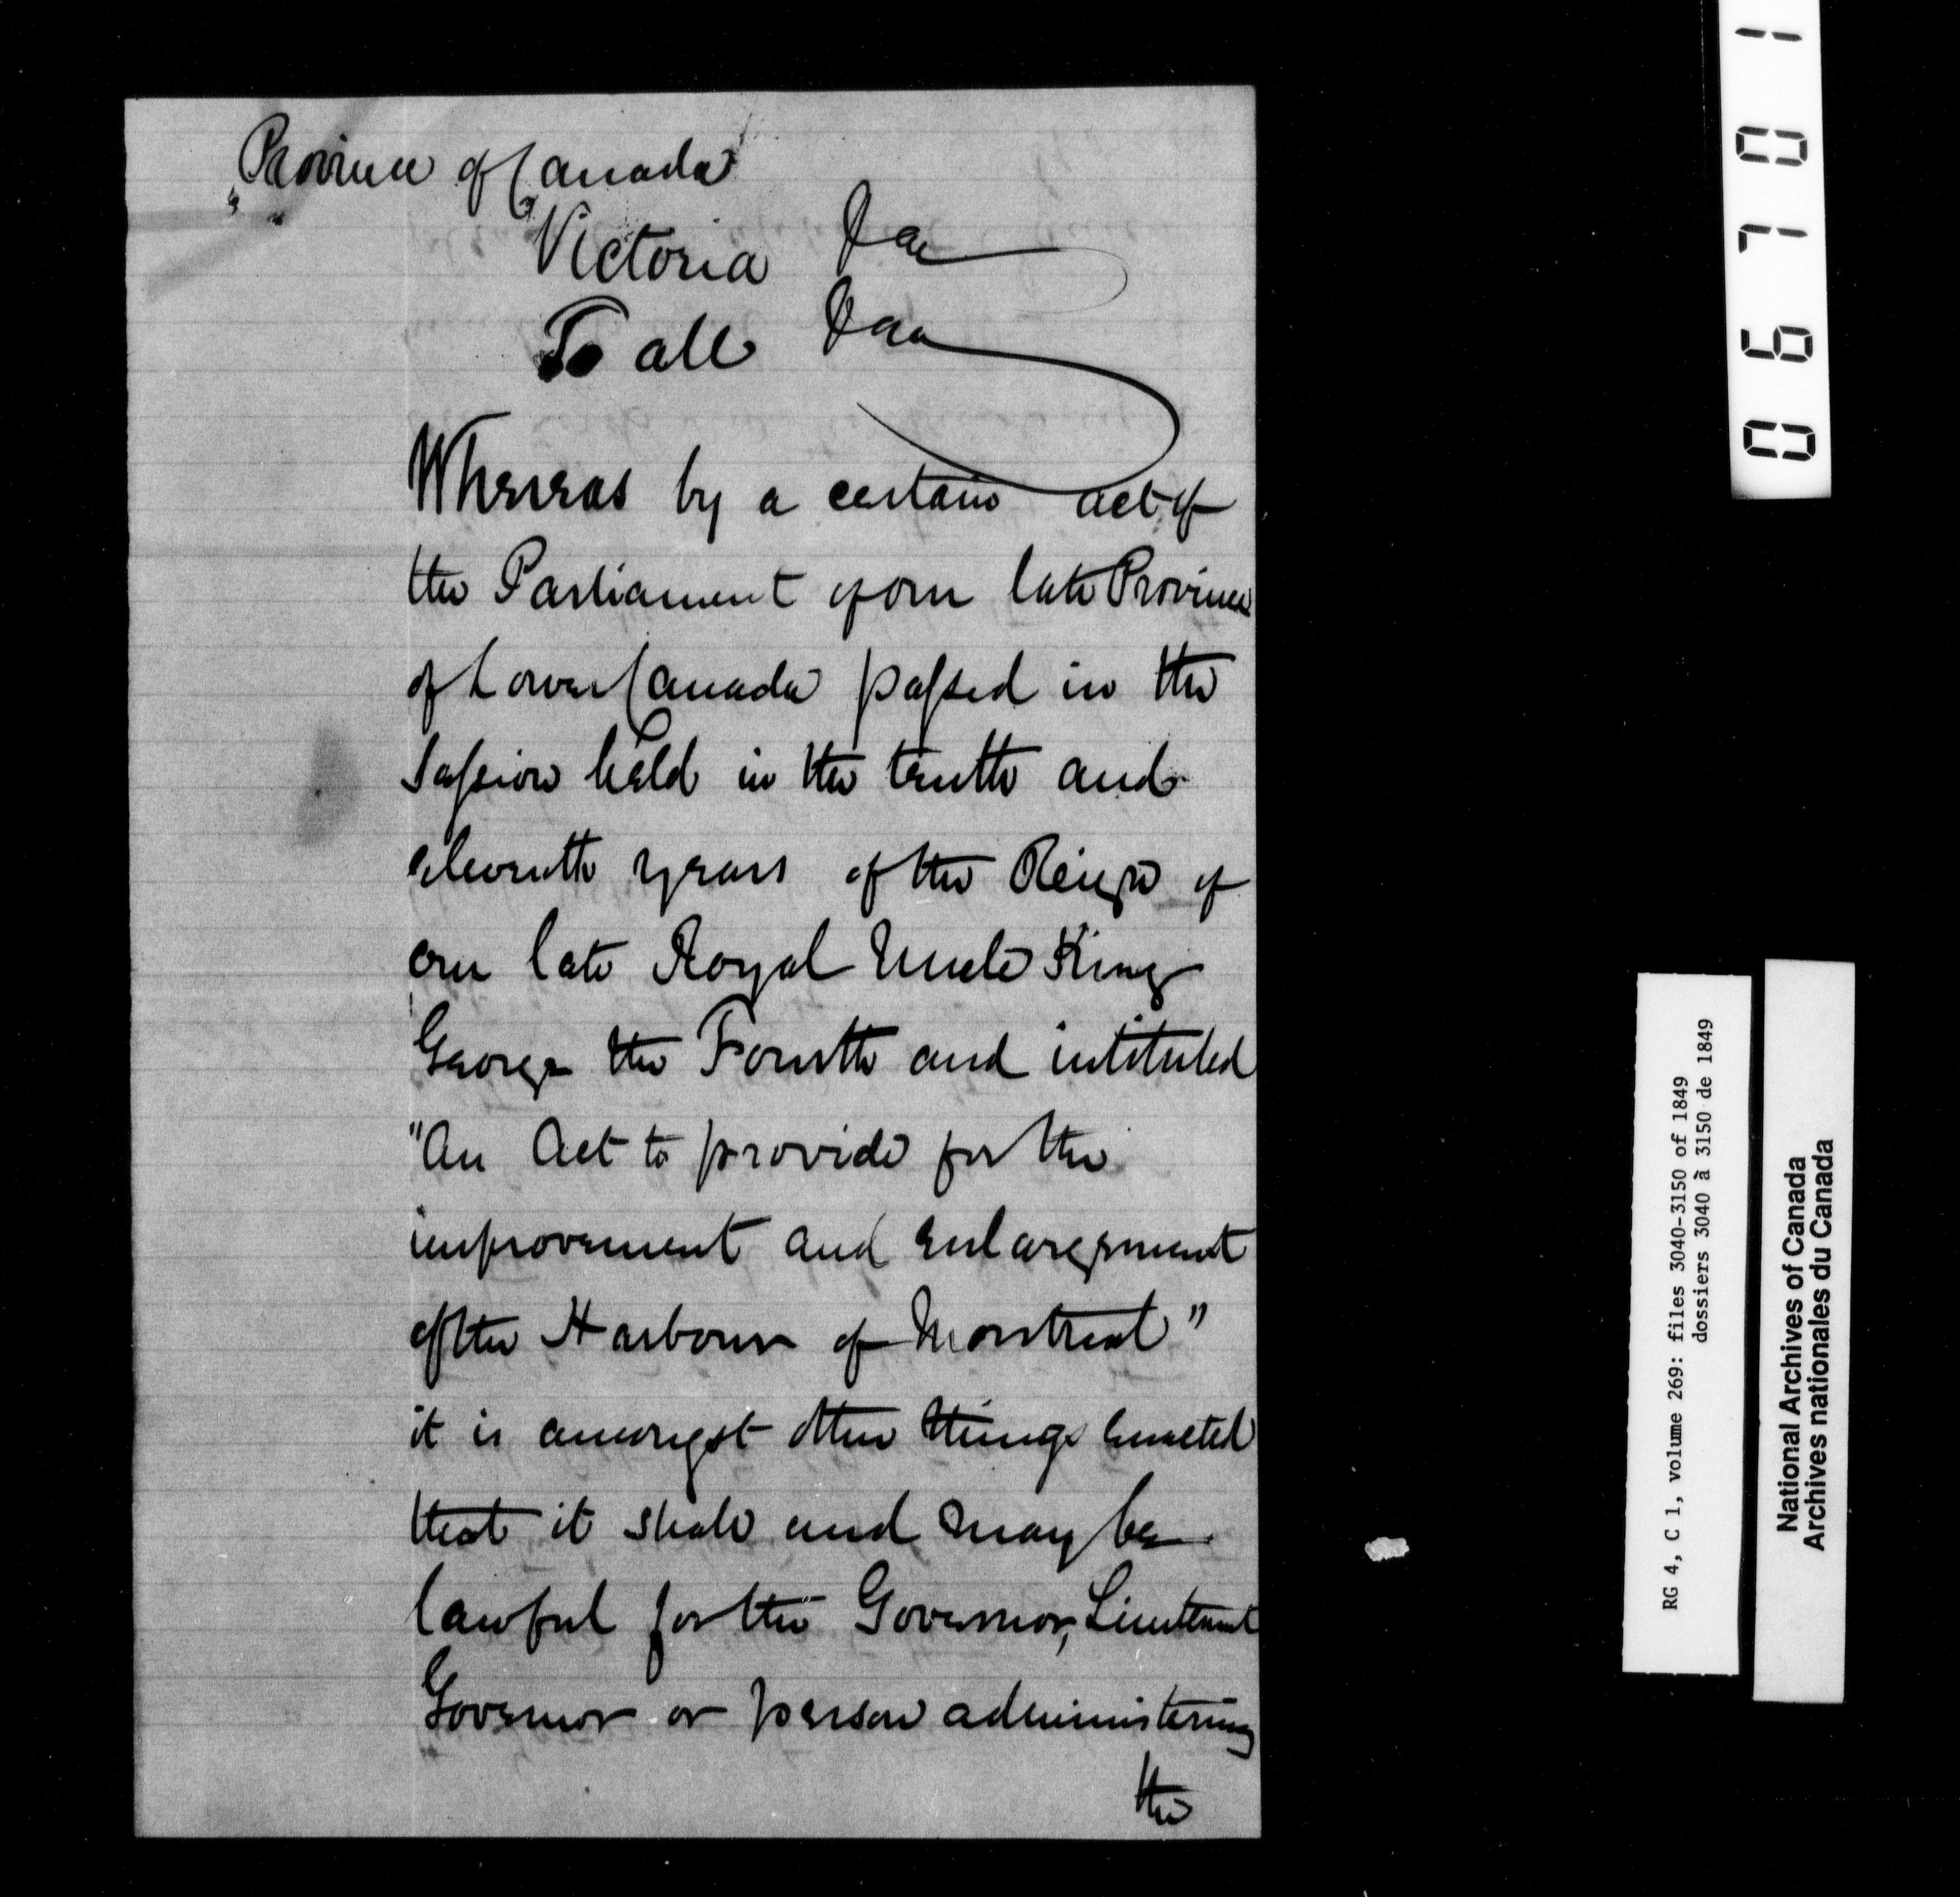 Province of Canada
Victoria &ce
To all &ca
Whereas by a certain act of
the Parliament of our late Province
of Lower Canada passed in the
Session held in the tenth and
eleventh years of the Reign of
our late Royal Uncle King
George the Fourth and intituled
"An Act to provide for the
improvement and enlargement
of the Harbour of Montreal"
it is amongst other things enacted
that it shall and may be
lawful for the Governor, Lieutenant
Governor or person administering
the
06701
RG 4, C 1, volume 269: files 3040-3150 of 1849
dossiers 3040 à 3150 de 1849
National Archives of Canada
Archives nationales du Canada